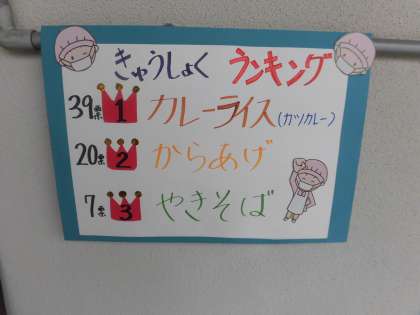 きゅうしょく ランキング
39票 1 カレーライス(カツカレー)
20票 2 からあげ
7票 3 やきそば